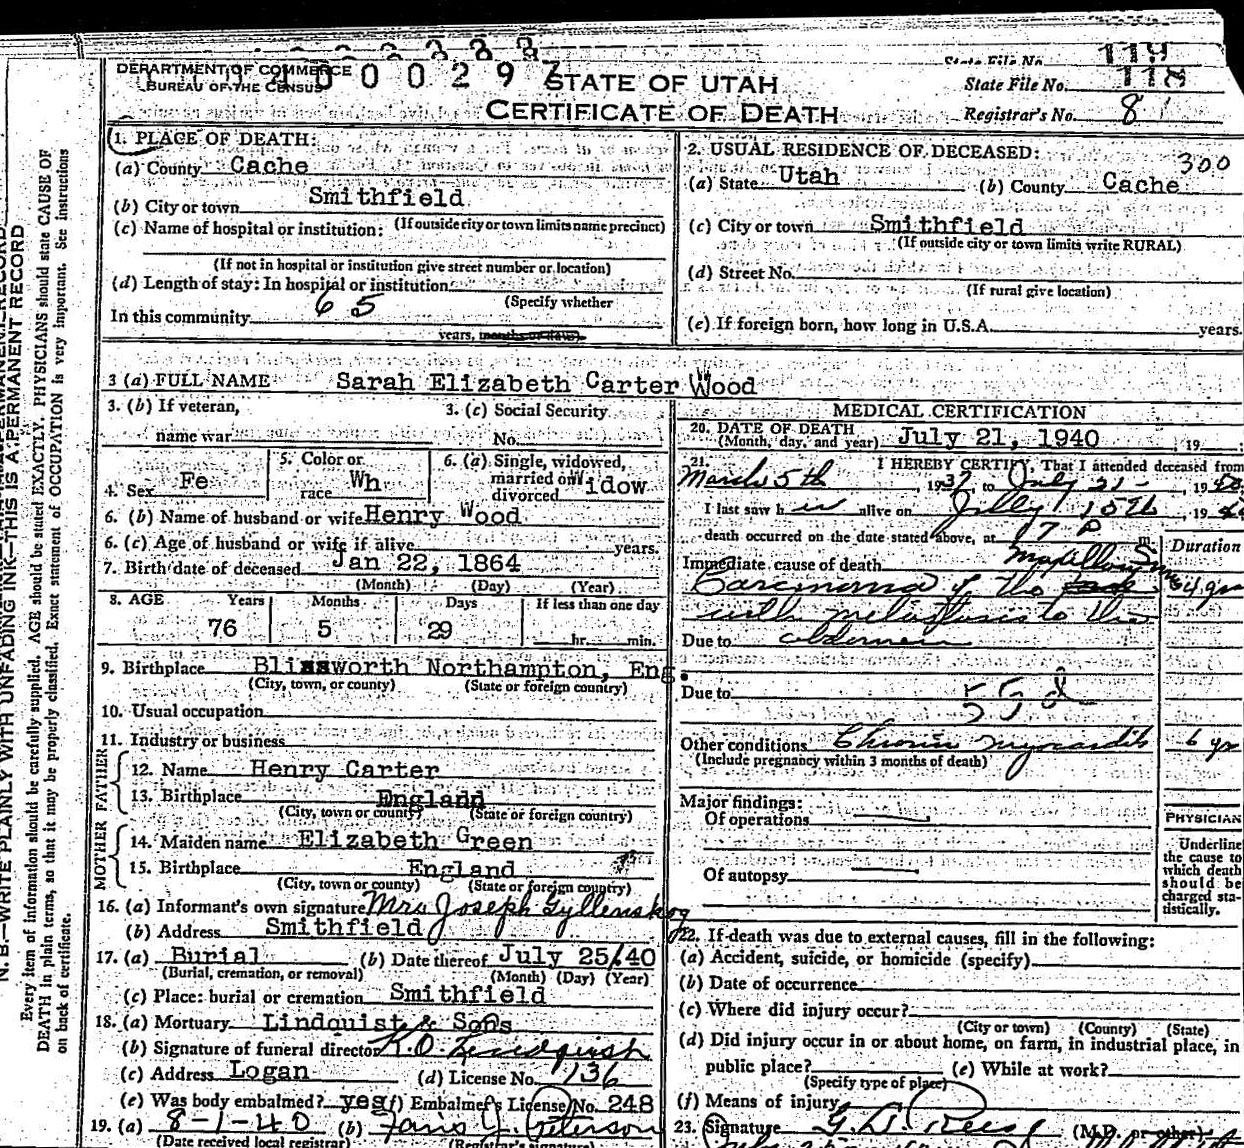 DEPARTMENT OF COMMERCE
BUREAU OF THE CENSUS
STATE OF UTAH
CERTIFICATE OF DEATH
State File No. 119
State File No. 118
Registrar's No. 8
1. PLACE OF DEATH:
(a) County Cache
(b) City or town Smithfield
(If outside city or town limits name precinct)
(c) Name of hospital or institution:
(If not in hospital or institution give street number or location)
(d) Length of stay: In hospital or institution
(Specify whether
In this community 65
years, months or days).
2. USUAL RESIDENCE OF DECEASED:
300
(a) State Utah (b) County Cache
(c) City or town Smithfield
(If outside city or town limits write RURAL)
(d) Street No.
(If rural give location)
(e) If foreign born, how long in U.S.A. years.
3 (a) FULL NAME Sarah Elizabeth Carter Wood
3. (b) If veteran,
name war
3. (c) Social Security
No.
4. Sex Fe
5. Color or
race Wh
6. (a) Single, widowed,
married or
divorced Widow
6. (b) Name of husband or wife Henry Wood
6. (c) Age of husband or wife if alive years.
7. Birth date of deceased Jan 22, 1864
(Month) (Day) (Year)
8. AGE Years Months Days If less than one day
76 5 29 hr. min.
9. Birthplace Blissworth Northampton, Eng.
(City, town, or county) (State or foreign country)
10. Usual occupation
11. Industry or business
FATHER
12. Name Henry Carter
13. Birthplace England
(City, town or county) (State or foreign country)
MOTHER
14. Maiden name Elizabeth Green
15. Birthplace England
(City, town or county) (State or foreign country)
16. (a) Informant's own signature Mrs Joseph Gyllenskog
(b) Address Smithfield
17. (a) Burial (b) Date thereof July 25/40
(Burial, cremation, or removal) (Month) (Day) (Year)
(c) Place: burial or cremation Smithfield
18. (a) Mortuary Lindquist & Sons
(b) Signature of funeral director K.O. Lindquist
(c) Address Logan (d) License No. 136
(e) Was body embalmed? yes (f) Embalmer's License No. 248
19. (a) 8-1-40 (b) Peterson
(Date received local registrar) (Registrar's signature)
MEDICAL CERTIFICATION
20. DATE OF DEATH
(Month, day, and year) July 21, 1940, 19
21. I HEREBY CERTIFY, That I attended deceased from
March 5th, 1937, to July 21-, 1940
I last saw her alive on July 15th, 1940
death occurred on the date stated above, at 17 P m.
Duration
Immediate cause of death
Carcinoma of the
with metastasis to the
Due to abdomen
Due to 55d
Other conditions Chronic myocarditis 6 yrs
(Include pregnancy within 3 months of death)
Major findings:
Of operations
Of autopsy
PHYSICIAN
Underline
the cause to
which death
should be
charged sta-
tistically.
22. If death was due to external causes, fill in the following:
(a) Accident, suicide, or homicide (specify)
(b) Date of occurrence
(c) Where did injury occur?
(City or town) (County) (State)
(d) Did injury occur in or about home, on farm, in industrial place, in
public place? (e) While at work?
(Specify type of place)
(f) Means of injury
23. Signature Rees (M.D. or other)
N. B.—WRITE PLAINLY WITH UNFADING INK—THIS IS A PERMANENT RECORD
Every item of information should be carefully supplied. AGE should be stated EXACTLY. PHYSICIANS should state CAUSE OF
DEATH in plain terms, so that it may be properly classified. Exact statement of OCCUPATION is very important. See instructions
on back of certificate.